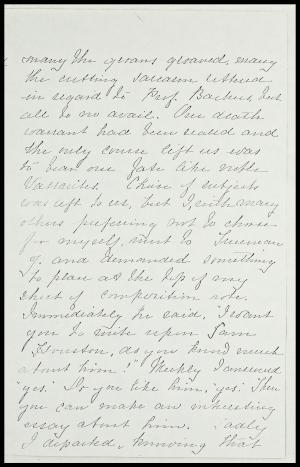 many the groans groaned, many
the cutting sarcasm uttered
in regard to Prof. Backus, but
all to no avail. Our death
warrant had been sealed and
the only course left us was
to bear our fate like noble
Vassarites. Choice of subjects
was left to us, but I, with many
others preferring not to choose
for myself, went to
of and demanded something
to place at the top of my
sheet of composition note.
Immediately he said, "I want
you to write upon Sam
Houston, do you know much
about him?" Meekly I answered
"yes." "Do you like him," "yes." "Then
you can make an interesting
essay about him. Sadly
I departed, knowing that